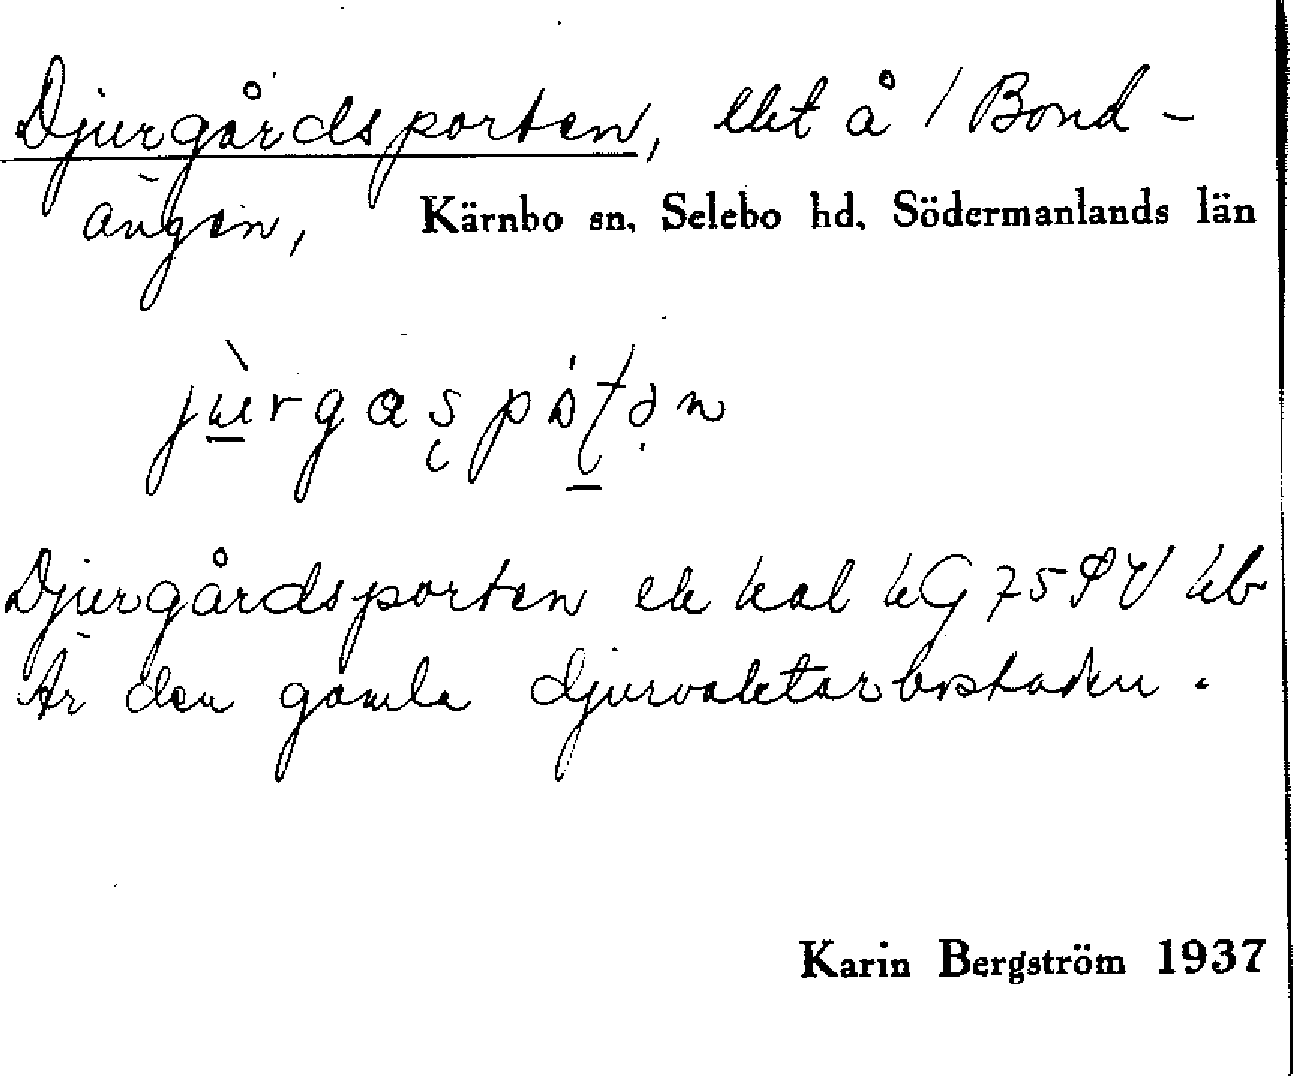 Djurgårdsporten, llet å 1 Bond-
ängen, Kärnbo sn, Selebo hd, Södermanlands län
Djurgårdsporten ek kal
Är den gamla djurvaktarbostaden.
Karin Bergström 1937